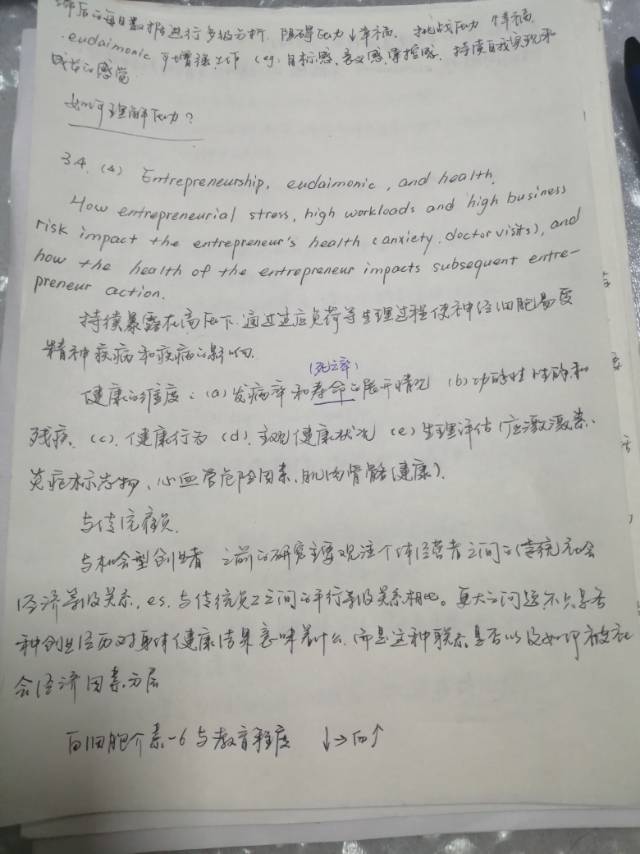 滞后的每日数据进行多级分析. 阻碍压力↓幸福. 挑战压力 ↑幸福.
eudaimonic 可增强工作 (eg. 目标感、意义感、掌控感、持续自我实现和
成长的感觉
如何理解压力?
3.4. (4) Entrepreneurship, eudaimonic, and health.
How entrepreneurial stress, high workloads and high business
risk impact the entrepreneur's health (anxiety, doctor visits), and
how the health of the entrepreneur impacts subsequent entre-
preneur action.
持续暴露在高压下. 通过适应负荷等生理过程使神经细胞易受
精神疾病和疾病的影响.
(死亡率)
健康的维度: (a) 发病率和寿命的展开情况 (b) 功能性性的和
残疾. (c). 健康行为 (d). 主观健康状况 (e) 生理评估 (应激激素、
炎症标志物、心血管危险因素、肌肉骨骼健康).
与传统雇员.
与机会型创业者 之前的研究主要观注个体经营者之间的传统社会
经济等级关系, eg. 与传统员工之间的平行等级关系相比。更大的问题不只是否
种创业经历对身体健康结果意味着什么, 而是这种联系是否以及如何被社
会经济因素分层
白细胞介素-6 与教育程度 ↓→白↑